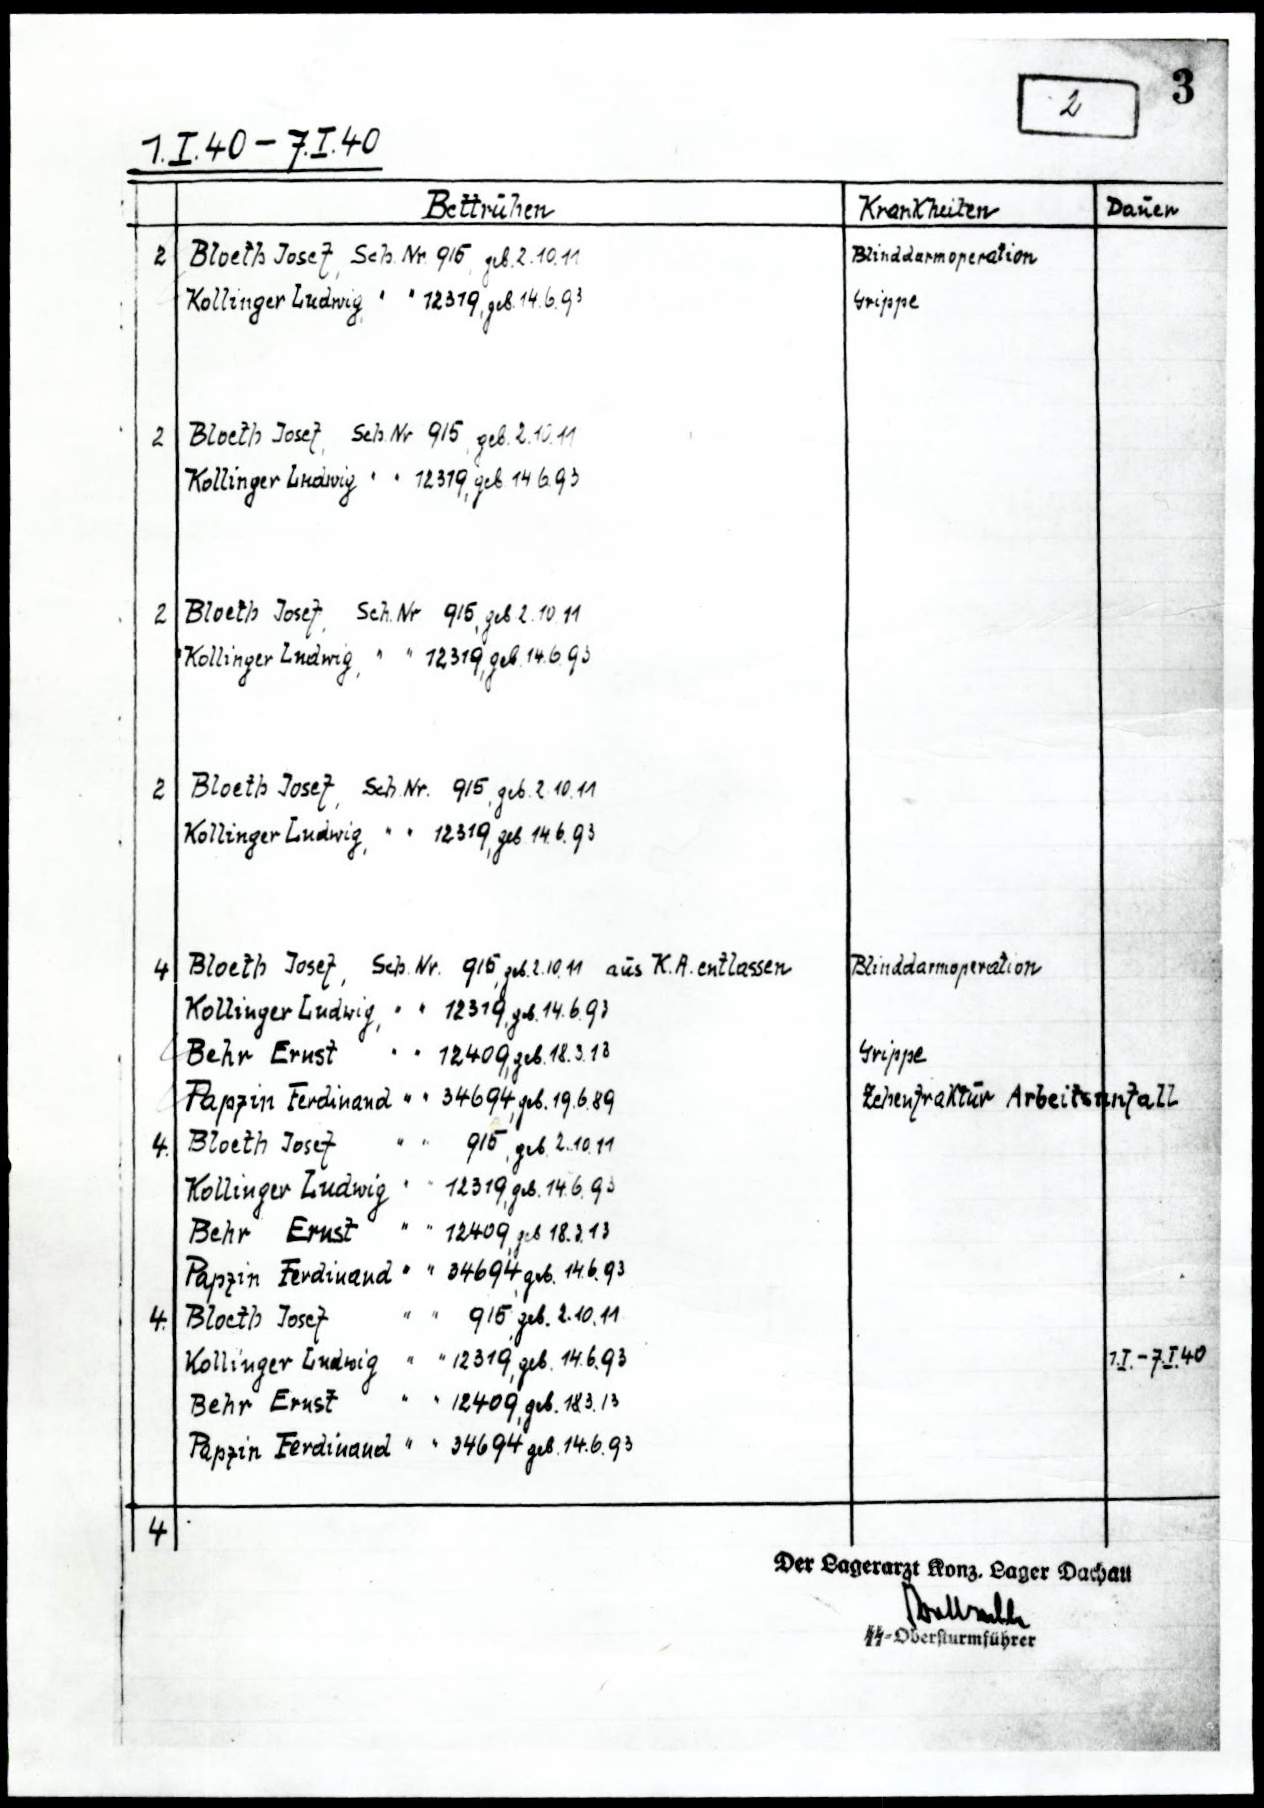 3
2
1.I.40 – 7.I.40
Bettrühen Krankheiten Dauer
2 Bloeth Josef, Sch. Nr. 915, geb. 2.10.11 Blinddarmoperation
Kollinger Ludwig, " " 12319, geb. 14.6.93 Grippe
2 Bloeth Josef, Sch. Nr 915, geb. 2.10.11
Kollinger Ludwig " " 12319, geb. 14.6.93
2 Bloeth Josef, Sch. Nr 915, geb 2.10.11
Kollinger Ludwig, " " 12319, geb. 14.6.93
2 Bloeth Josef, Sch. Nr. 915, geb. 2.10.11
Kollinger Ludwig, " " 12319, geb 14.6.93
4 Bloeth Josef, Sch. Nr. 915, geb. 2.10.11 aus K.A. entlassen Blinddarmoperation
Kollinger Ludwig, " " 12319, geb. 14.6.93
Behr Ernst " " 12409, geb. 18.3.13 Grippe
Papzin Ferdinand " " 34694, geb. 19.6.89 Zehenfraktur Arbeitsunfall
4. Bloeth Josef " " 915, geb. 2.10.11
Kollinger Ludwig " " 12319, geb. 14.6.93
Behr Ernst " " 12409, geb 18.3.13
Papzin Ferdinand " " 34694, geb. 14.6.93
4. Bloeth Josef " " 915, geb. 2.10.11
Kollinger Ludwig " " 12319, geb. 14.6.93 1.I. – 7.I.40
Behr Ernst " " 12409, geb. 18.3.13
Papzin Ferdinand " " 34694 geb. 14.6.93
4
Der Lagerarzt Konz. Lager Dachau
SS-Obersturmführer